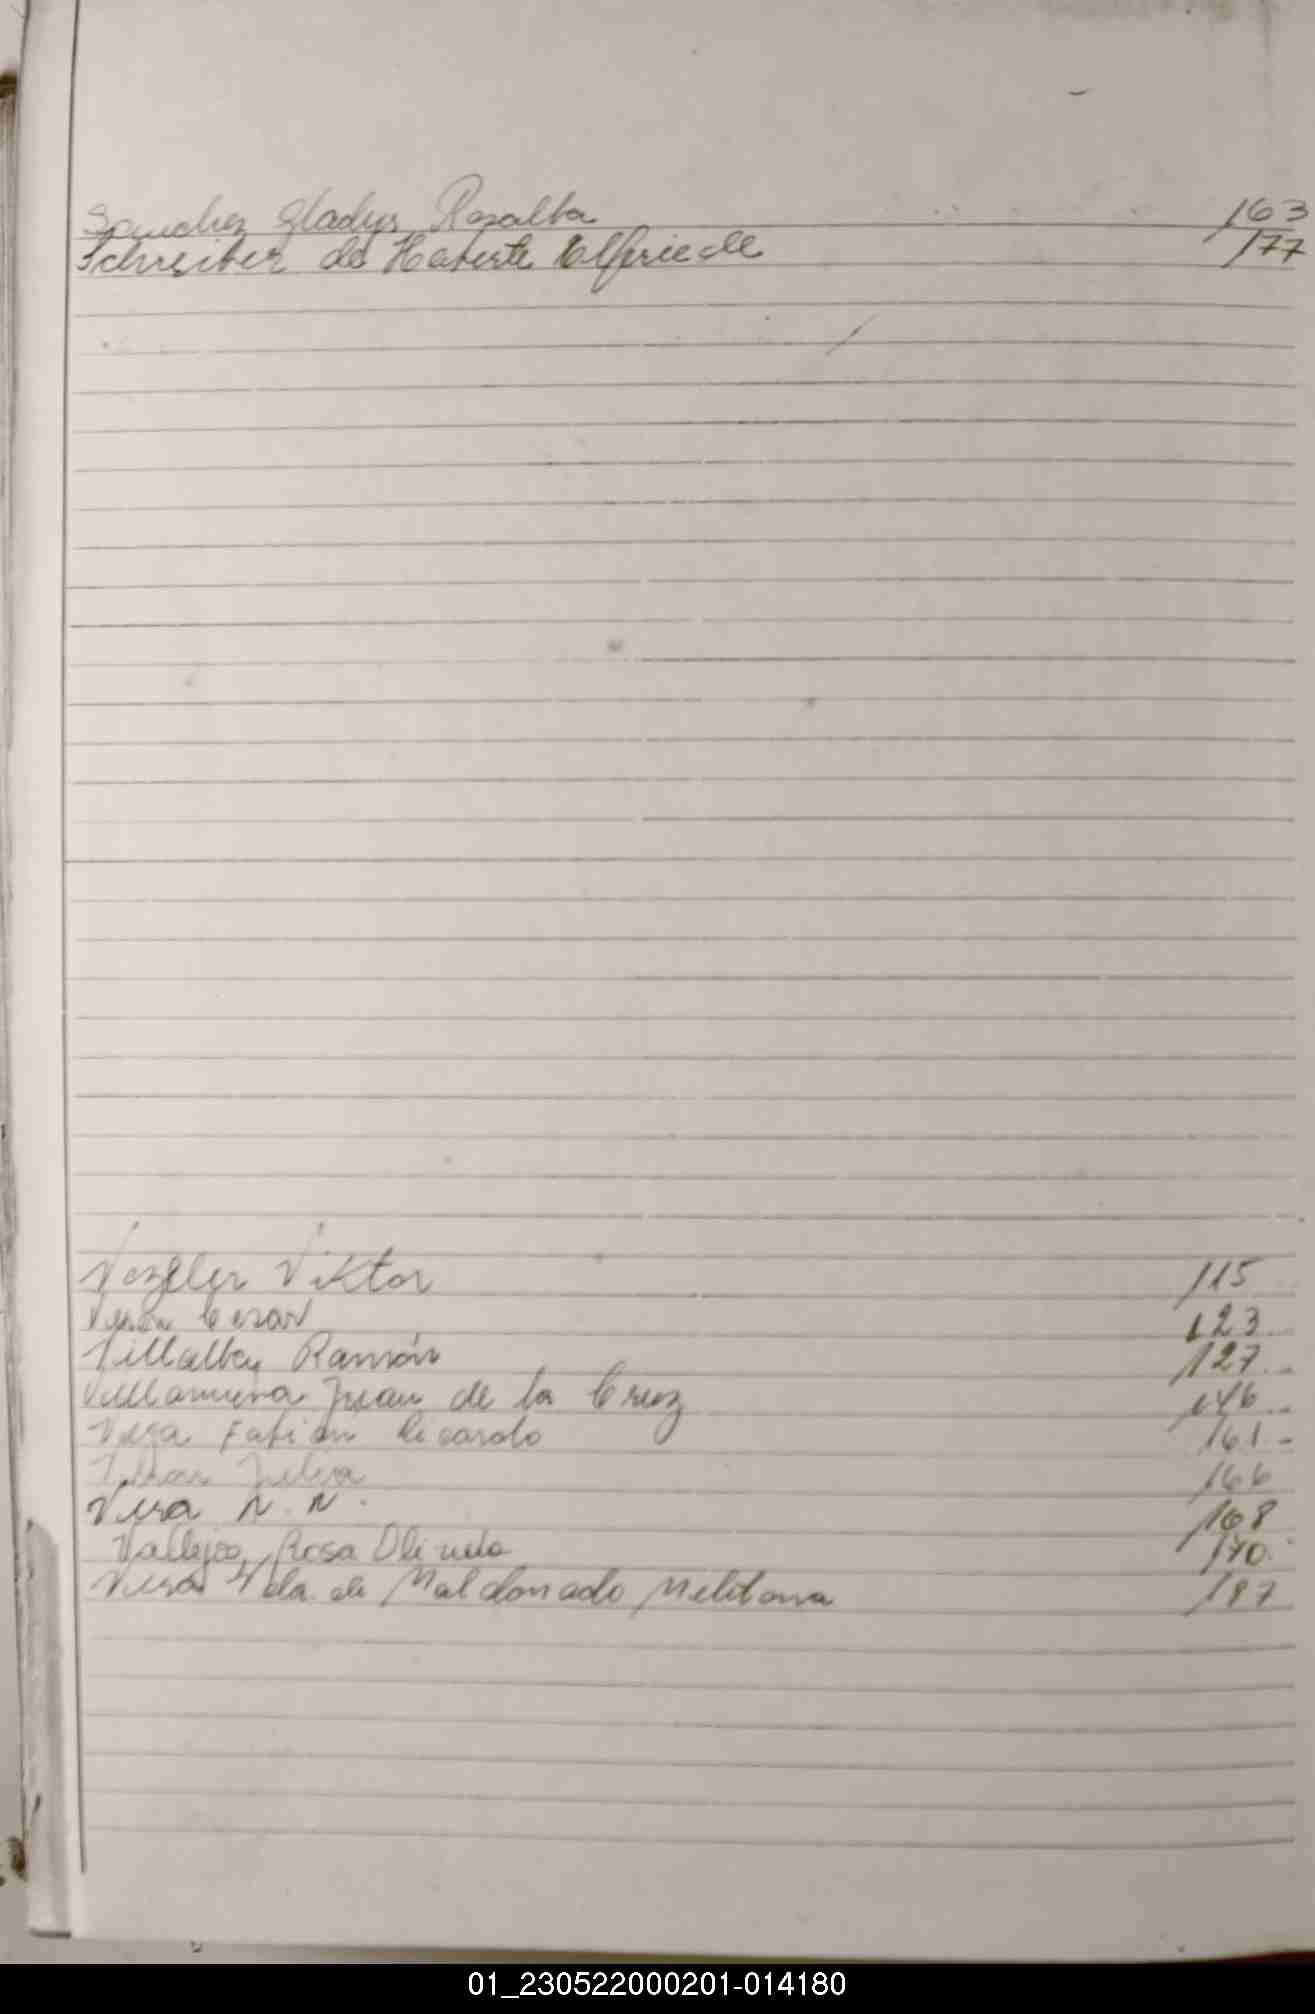 Sanchez Gladys Rosalba 163
Schreiber de Haberte Elfriede 177
Viktor 115
Cesar 123
Villalba Ramón 127
Juan de la Cruz 146
Vega Fabián Ricardo 161
Julia 166
Vera N. N. 168
Vallejos, Rosa 170
Vera Vda. de Maldonado Melitona 187
01_230522000201-014180